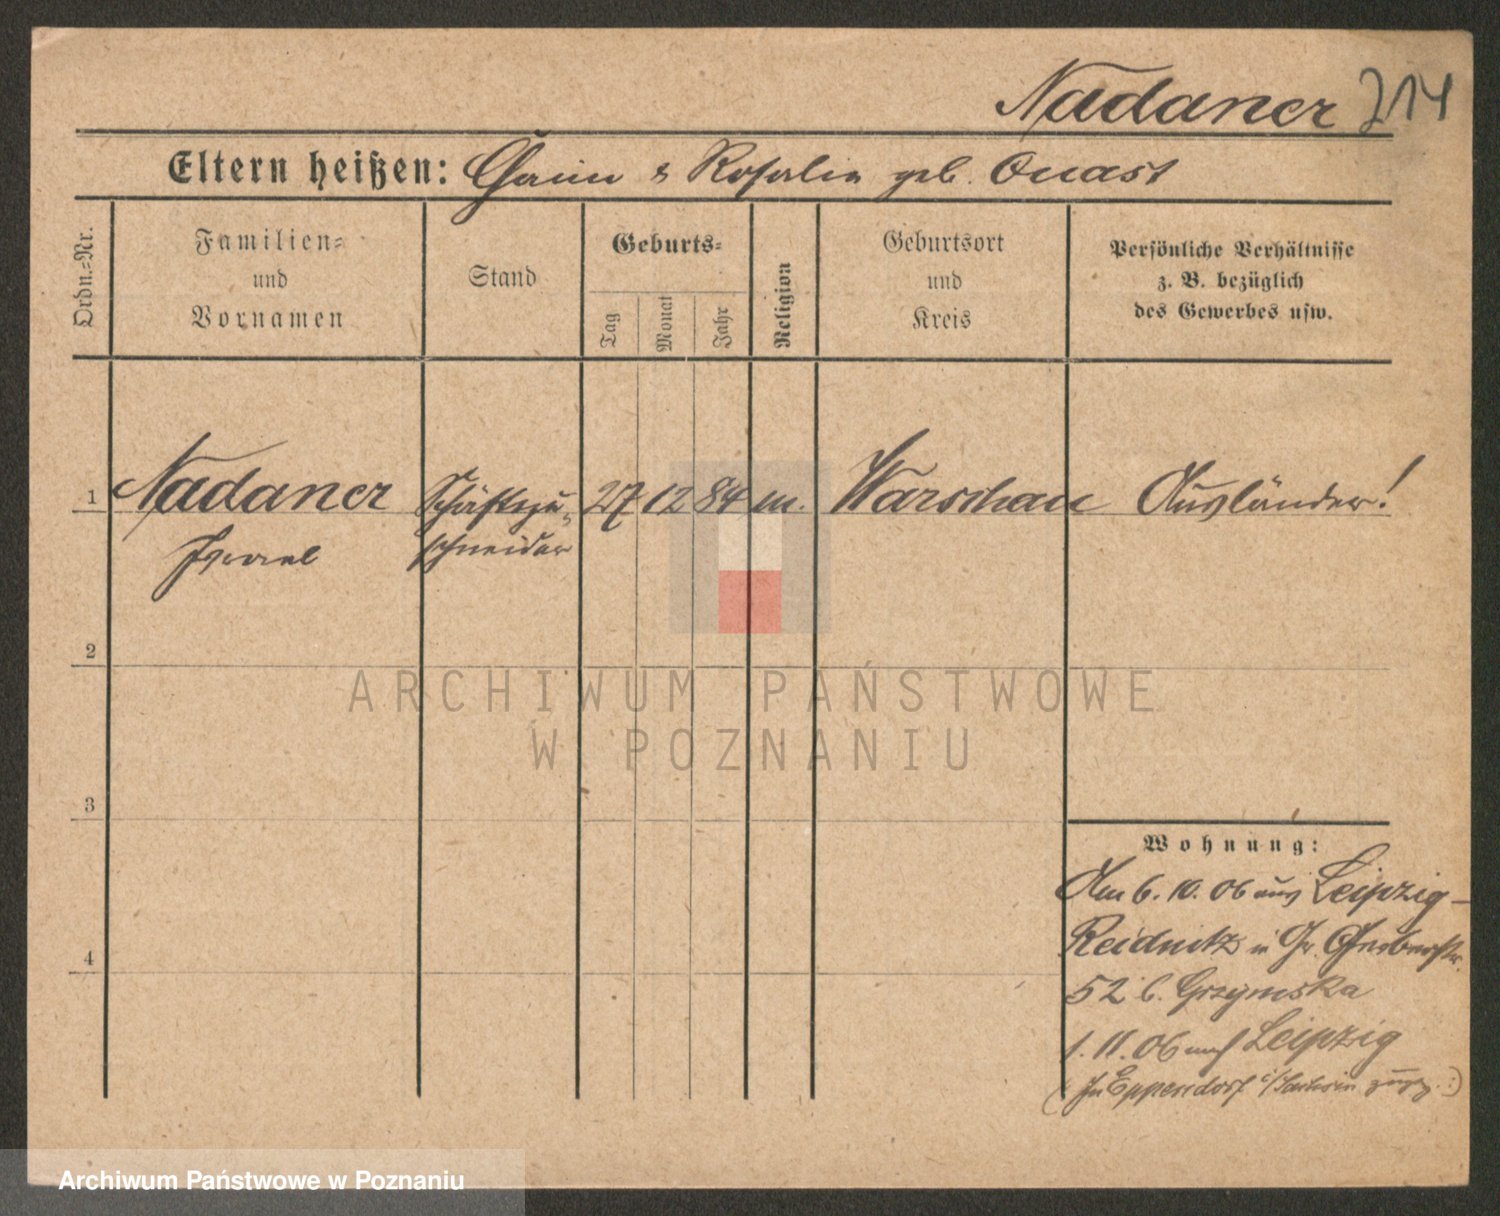 Nadaner 214
Eltern heißen: Chaim & Rosalie geb. Quast
Ordn.-Nr.
Familien-
und
Vornamen
Stand
Geburts-
Tag
Monat
Jahr
Religion
Geburtsort
und
Kreis
Persönliche Verhältnisse
z. B. bezüglich
des Gewerbes usw.
1 Nadaner Schäftezu- 27 12 84 m. Warschau Ausländer!
Israel schneider
2
3
4
Wohnung:
Am 6. 10. 06 aus Leipzig-
Reidnitz in Gr. Gerberstr.
52 b. Grzymska
1. 11. 06 nach Leipzig
(In Eppendorf i/Sachsen zugz. :)
ARCHIWUM PAŃSTWOWE
W POZNANIU
Archiwum Państwowe w Poznaniu